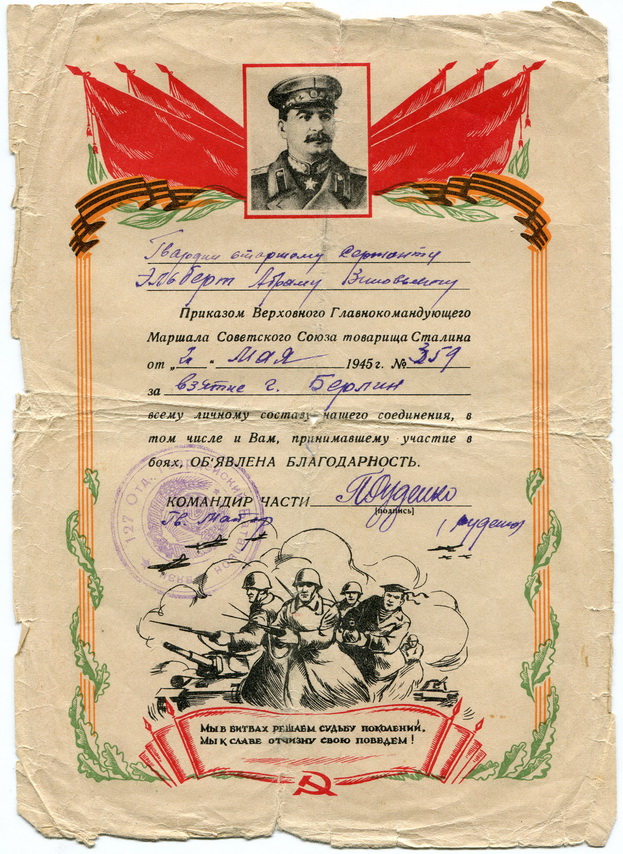 Гвардии старшему сержанту
Эльберт Абраму
Приказом Верховного Главнокомандующего
Маршала Советского Союза товарища Сталина
от „2 “ мая 1945 г. № 359
за взятие г. Берлин
всему личному составу нашего соединения, в
том числе и Вам, принимавшему участие в
боях, ОБ‘ЯВЛЕНА БЛАГОДАРНОСТЬ.
КОМАНДИР ЧАСТИ
(подпись)
Гв. майор
127 Отд.
МЫ В БИТВАХ РЕШАЕМ СУДЬБУ ПОКОЛЕНИЙ,
МЫ К СЛАВЕ ОТЧИЗНУ СВОЮ ПОВЕДЕМ!